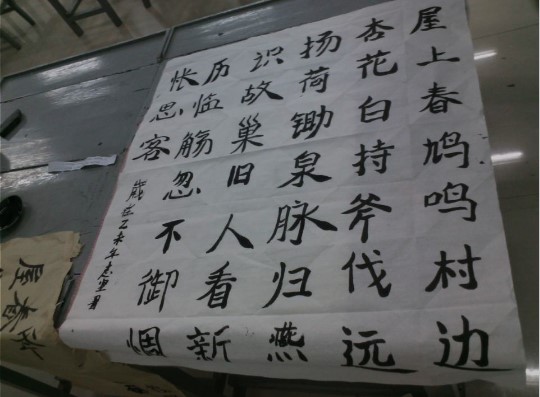 屋上春鸠鸣村边
杏花白持斧伐远
扬荷锄泉脉归燕
识故巢旧人看新
历临觞忽不御惆
怅思客
歲在乙未年